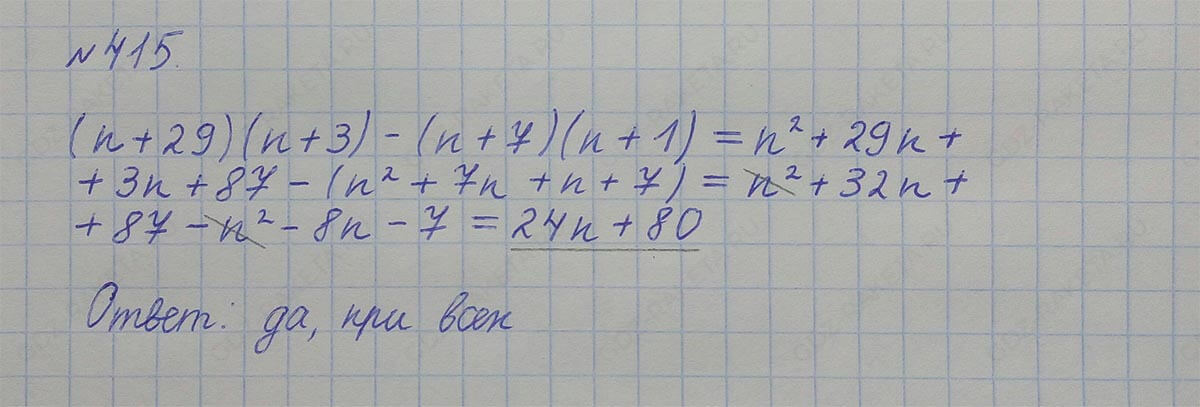 №415.
(n+29)(n+3)-(n+7)(n+1)=n²+29n+
+3n+87-(n²+7n+n+7)=n²+32n+
+87-n²-8n-7=24n+80
Ответ: да, при всех